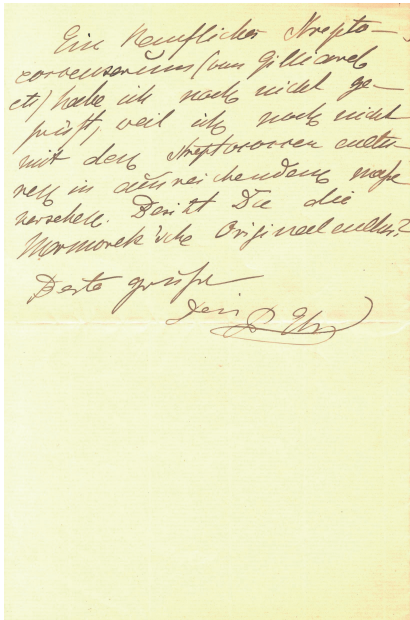 Ein käuflicher Strepto-
coccenserum (von Gilliard
etc) habe ich noch nicht ge-
prüft, weil ich noch nicht
mit den Streptococcen cultu-
ren in ausreichendem maße
versehen. Besitzt Du die
Marmorek'sche Originalcultur?
Beste Grüße
Dein P. Ehr